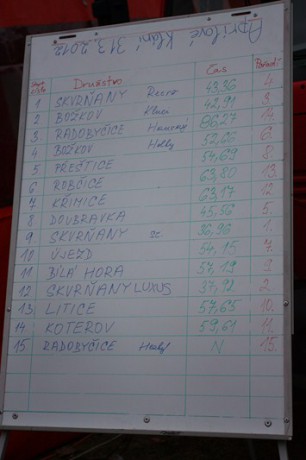 Aprílové klání 31.3.2012
Start. číslo Družstvo Čas Pořadí
1 SKVRŇANY Retro 43,96 4.
2 BOŽKOV Kluci 42,91 3.
3 RADOBYČICE 86,27 14.
4 BOŽKOV Holky 52,88 6.
5 PŘEŠTICE 54,69 8.
6 ROBČICE 63,80 13.
7 KŘIMICE 63,17 12.
8 DOUBRAVKA 45,56 5.
9 SKVRŇANY 36,96 1.
10 ÚJEZD 54,15 7.
11 BÍLÁ HORA 57,19 9.
12 SKVRŇANY LUXUS 37,92 2.
13. LITICE 57,65 10.
14. KOTEROV 59,61 11.
15 RADOBYČICE N 15.